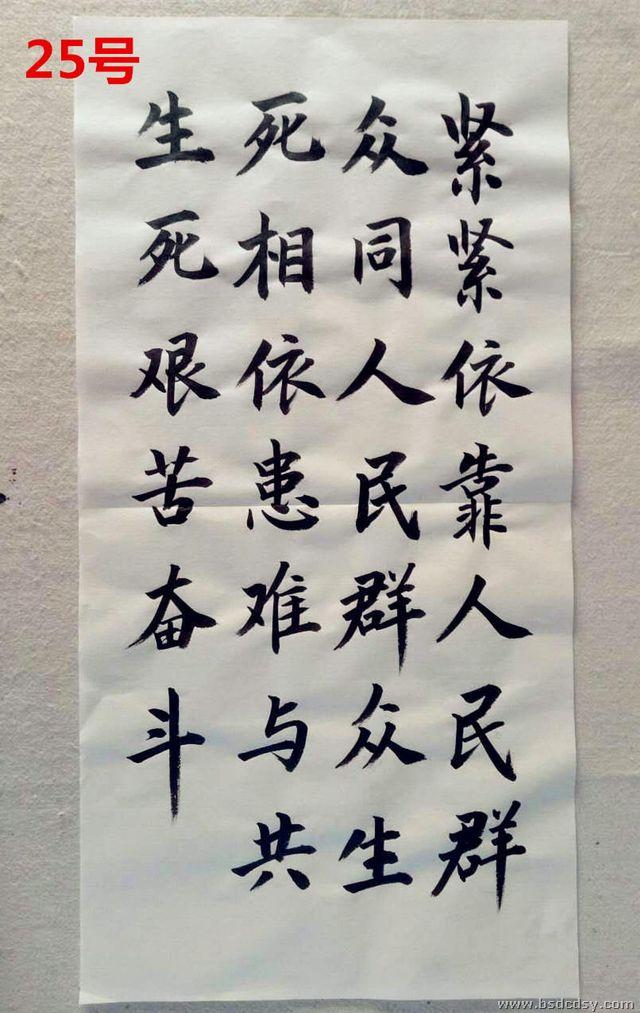 25号
紧紧依靠人民群
众同人民群众生
死相依患难与共
生死艰苦奋斗
www.bsdcdsy.com